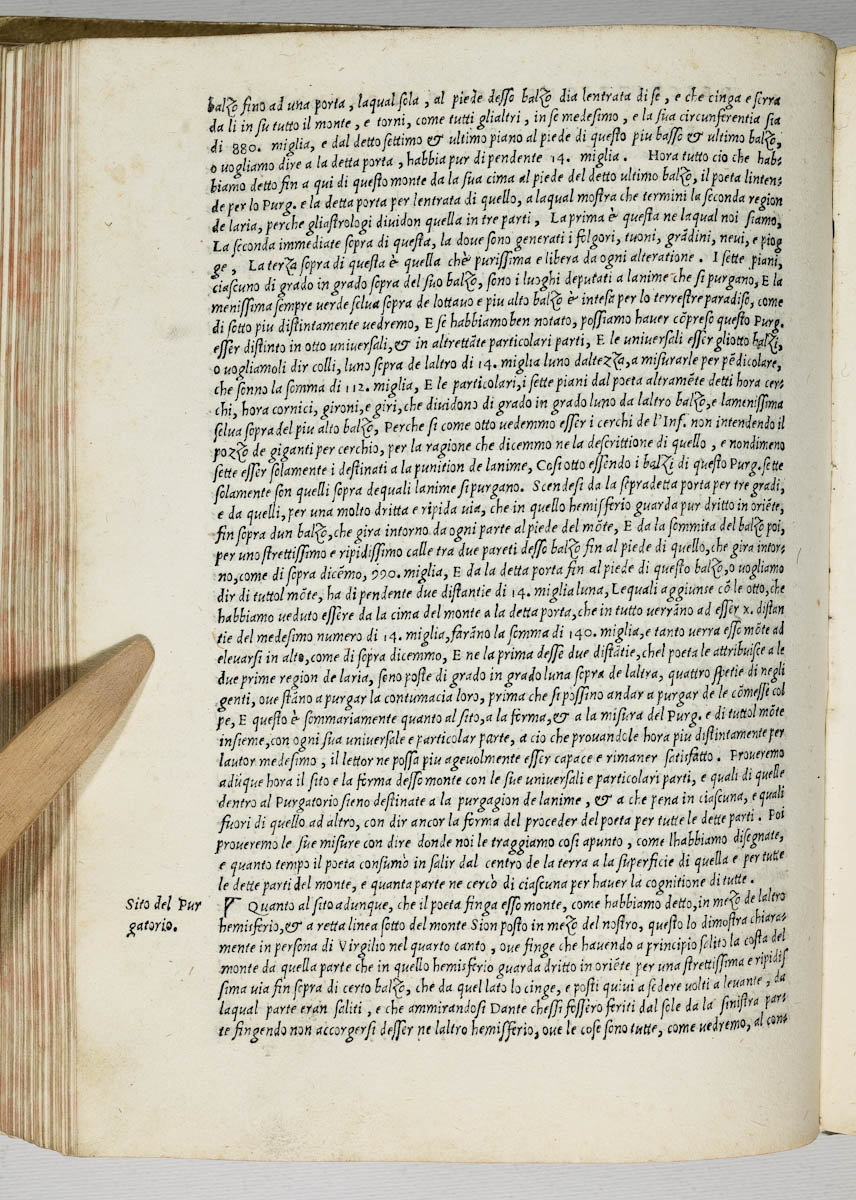 balzo fino ad una porta, laqual sola, al piede desso balzo dia lentrata di se, e che cinga e serra
da li in su tutto il monte, e torni, come tutti glialtri, in se medesimo, e la sua circunferentia sia
di 880. miglia, e dal detto settimo & ultimo piano al piede di questo piu basso & ultimo balzo,
o vogliamo dire a la detta porta, habbia pur di pendente 14. miglia. Hora tutto cio che hab-
biamo detto fin a qui di questo monte da la sua cima al piede del detto ultimo balzo, il poeta linten-
de per lo Purg. e la detta porta per lentrata di quello, a laqual mostra che termini la seconda region
de laria, perche gliastrologi dividon quella in tre parti, La prima è questa ne laqual noi siamo,
La seconda immediate sopra di questa, la dove sono generati i folgori, tuoni, grādini, nevi, e piog
ge, La terza sopra di questa è quella chè purissima e libera da ogni alteratione. I sette piani,
ciascuno di grado in grado sopra del suo balzo, sono i luoghi deputati a lanime che si purgano, E la
menissima sempre verde selva sopra de lottavo e piu alto balzo è intesa per lo terrestre paradiso, come
di sotto piu distintamente vedremo, E se habbiamo ben notato, possiamo haver cōpreso questo Purg.
esser distinto in otto universali, & in altrettāte particolari parti, E le universali esser gliotto balzi,
o vogliamoli dir colli, luno sopra de laltro di 14. miglia luno daltezza, a misurarle per pēdicolare,
che fenno la somma di 112. miglia, E le particolari, i sette piani dal poeta altramēte detti hora cer-
chi, hora cornici, gironi, e giri, che dividono di grado in grado luno da laltro balzo, e lamenissima
selva sopra del piu alto balzo, Perche si come otto vedemmo esser i cerchi de l'Inf. non intendendo il
pozzo de giganti per cerchio, per la ragione che dicemmo ne la descrittione di quello, e nondimeno
sette esser solamente i destinati a la punition de lanime, Cosi otto essendo i balzi di questo Purg. sette
solamente son quelli sopra dequali lanime si purgano. Scendesi da la sopradetta porta per tre gradi,
e da quelli, per una molto dritta e ripida via, che in quello hemisferio guarda pur dritto in oriēte,
fin sopra dun balzo, che gira intorno da ogni parte al piede del mōte, E da la sommita del balzo poi,
per uno strettissimo e ripidissimo calle tra due pareti desso balzo fin al piede di quello, che gira intor-
no, come di sopra dicēmo, 990. miglia, E da la detta porta fin al piede di questo balzo, o vogliamo
dir di tuttol mōte, ha di pendente due distantie di 14. miglia luna, Lequali aggiunse cō le otto, che
habbiamo veduto essere da la cima del monte a la detta porta, che in tutto verrāno ad esser x. distan
tie del medesimo numero di 14. miglia, farāno la somma di 140. miglia, e tanto verra esso mōte ad
elevarsi in alto, come di sopra dicemmo, E ne la prima desse due distātie, chel poeta le attribuisce a le
due prime region de laria, seno poste di grado in grado luna sopra de laltra, quattro spetie di negli
genti, ove stāno a purgar la contumacia loro, prima che si possino andar a purgar de le cōmesse col
pe, E questo è sommariamente quanto al sito, a la forma, & a la misura del Purg. e di tuttol mōte
insieme, con ogni sua universale e particolar parte, a cio che provandole hora piu distintamente per
lautor medesimo, il lettor ne possa piu agevolmente esser capace e rimaner satisfatto. Proveremo
adūque hora il sito e la forma desso monte con le sue universali e particolari parti, e quali di quelle
dentro al Purgatorio sieno destinate a la purgagion de lanime, & a che pena in ciascuna, e quali
fuori di quello ad altro, con dir ancor la forma del proceder del poeta per tutte le dette parti. Poi
proveremo le sue misure con dire donde noi le traggiamo cosi apunto, come lhabbiamo disegnate,
e quanto tempo il poeta consumò in salir dal centro de la terra a la superficie di quella e per tutte
le dette parti del monte, e quanta parte ne cercò di ciascuna per haver la cognitione di tutte.
Sito del Pur
gatorio.
Quanto al sito adunque, che il poeta finga esso monte, come habbiamo detto, in mezo de laltro
hemisferio, & a retta linea sotto del monte Sion posto in mezo del nostro, questo lo dimostra chiara-
mente in persona di Virgilio nel quarto canto, ove finge che havendo a principio solito la costa del
monte da quella parte che in quello hemisferio guarda dritto in oriēte per una strettissima e ripidis
sima via fin sopra di certo balzo, che da quel lato lo cinge, e posti quivi a sedere volti a levante, da
laqual parte eran saliti, e che ammirandosi Dante chessi fossero feriti dal sole da la sinistra par-
te fingendo non accorgersi desser ne laltro hemisferio, ove le cose sono tutte, come vedremo, al con-